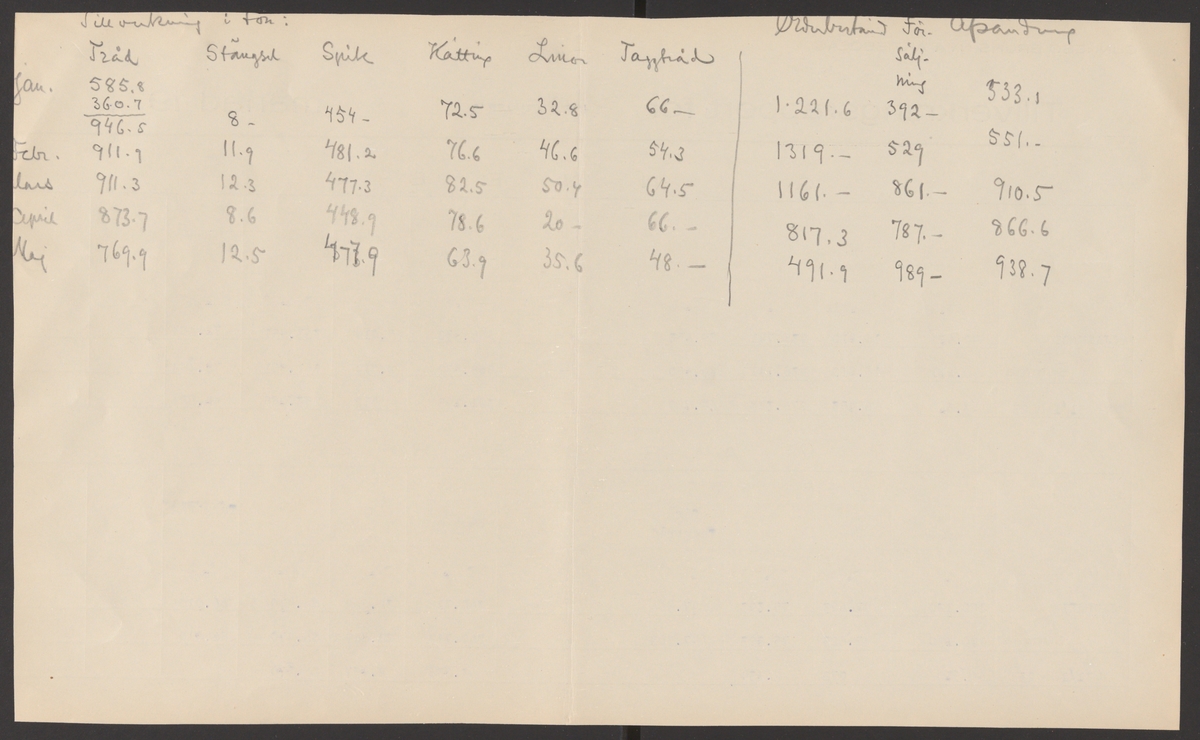 Tillverkning i ton: Orderbestånd För- Afsändning
Tråd Stängsel Spik Kätting Linor Taggtråd sälj-
ning
Jan. 585.8
360.7
946.5 8- 454- 72.5 32.8 66- 1.221.6 392- 533.1
Febr. 911.9 11.9 481.2 76.6 46.6 54.3 1319.- 529 551.-
Mars 911.3 12.3 477.3 82.5 50.4 64.5 1161.- 861.- 910.5
April 873.7 8.6 448.9 78.6 20- 66.- 817.3 787.- 866.6
Maj 769.9 12.5 477.9 63.9 35.6 48.- 491.9 989- 938.7